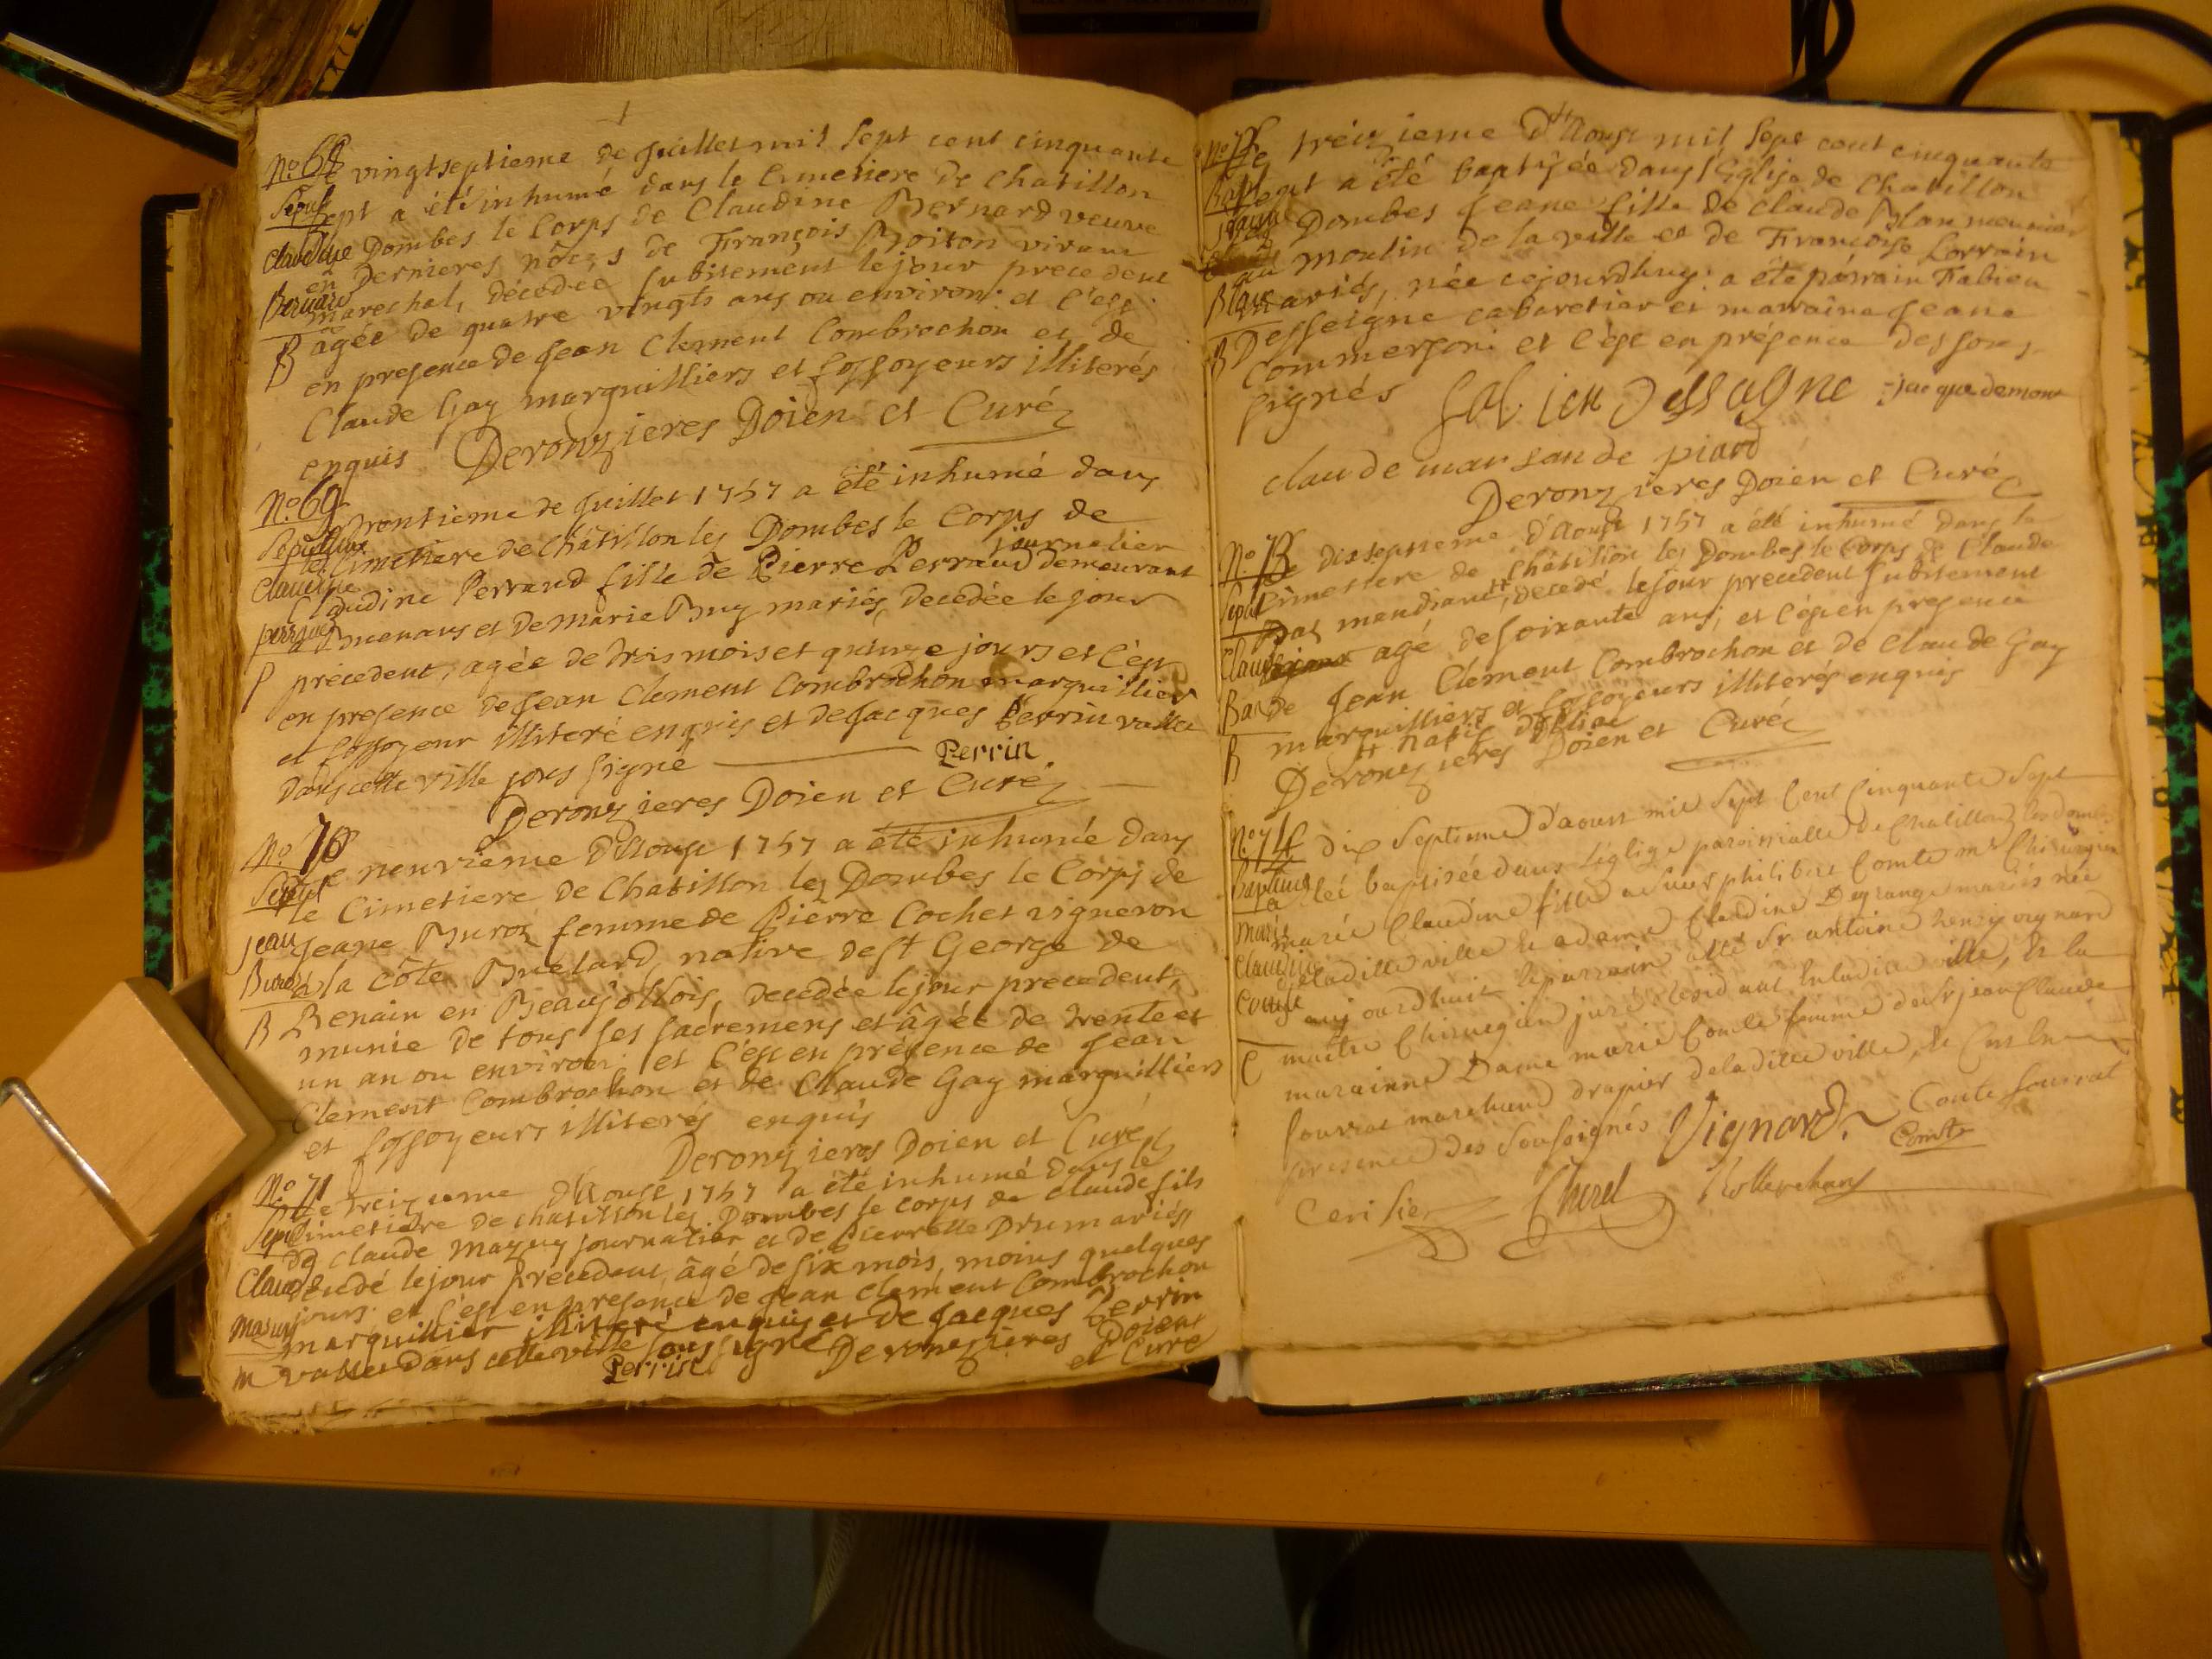 N.o 68
Le vingtseptieme de Juillet mil sept cent cinquante
Sepult
sept a été inhumé dans le Cimetiere de Chatillon
Claudine
les Dombes le Corps de Claudine Bernard veuve
en dernieres nôces de François Boiton vivant
Bernard
marechal, décedée subitement le jour precedent
B
agée de quatre vingts ans ou environ: et c'est
en presence de Jean Clement Combrochon et de
Claude Gay marguilliers et fossoyeurs illiterés
enquis Deronzieres Doien et Curé
N.o 69
Le trentieme de Juillet 1757 a été inhumé dans
Sepulture
le Cimetiere de Châtillon les Dombes le Corps de
journalier
Claudine
Claudine Perraud fille de Pierre Perraud demeurant
perraud
et de marie Buy mariés, decédée le jour
P
précedent, agée de trois mois et quinze jours et c'est
en presence de Jean Clement Combrochon marguillier
et fossoyeur illiteré enquis et de Jacques Perrin vallet
dans cette ville sous signé Perrin
Deronzieres Doien et Curé
N.o 70
Le neuvieme d'Aoust 1757 a été inhumée dans
Sepult
le Cimetiere de Chatillon les Dombes le Corps de
jean
Jeane Buroz femme de Pierre Cochet vigneron
à la côte Buelard, native de St George de
B
Renain en Beaujollois, decedée le jour precedent,
munie de tous ses sacremens et âgée de trente et
un an ou environ: et c'est en présence de Jean
Clement Combrochon et de Claude Gay marguilliers
et fossoyeurs illiterés enquis
Deronzieres Doien et Curé
N.o 71
Le treizieme d'Aoust 1757 a été inhumé dans le
Sepult
Cimetiere de chatillon les Dombes le corps de Claude fils
de Claude Mazuy journalier et de Pierrette Dru mariés,
Claude
decedé le jour precedent, âgé de six mois, moins quelques
jours: et c'est en presence de Jean Clement Combrochon
mazuy
marguillier illiteré enquis et de Jacques Perrin
m
vallet dans cette ville sous signé Deronzieres Doien
Perrin et Curé
N.o 72
Le treizieme d'Aoust mil sept cent cinquante
Bapt
sept a été baptisée dans l'Eglise de Chatillon
jeane
les Dombes Jeane fille de Claude Blan meunier
au moulin de la ville et de Françoise Lorrain
Blan
mariés, née cejourdhuy: a été parrain Fabien
B
Desseigne cabaretier et marraine Jeane
Commerson: et c'est en présence des sous-
signés fabien dessagne jacque demont
claude marsande piard
Deronzieres Doien et Curé
N.o 73
Le dixseptieme d'Aoust 1757 a été inhumé dans le
Sepult
Cimetiere de Châtillon les Dombes le Corps de Claude
Bas mendiant, decedé le jour precedent subitement
Claude
agé de soixante ans; et c'est en presence
Bas
de Jean Clément Combrochon et de Claude Gay
B
marguilliers et fossoyeurs illiterés enquis
natif
Deronzieres Doien et Curé
N.o 74
Le dix Septieme d'aoust mil Sept Cent Cinquante Sept
Bapteme
a été baptisée dans l'église paroissialle de Chatillon les dombes
marie
marie Claudine fille de sieur philibert Comte me Chirurgien
Claudine
de ladite ville et de dame Claudine Degrange mariés née
Comte
aujourdhuit le parrain a été Sr antoine henry vignard
C
maitre Chirurgien juré residant en ladite ville, et la
marainne Dame marie Comte femme de Sr jean Claude
Sourrat marchand drapier de ladite ville, et c'est en
presence des Sousignés Vignard Comte Sourrat
Comte
Cerisier